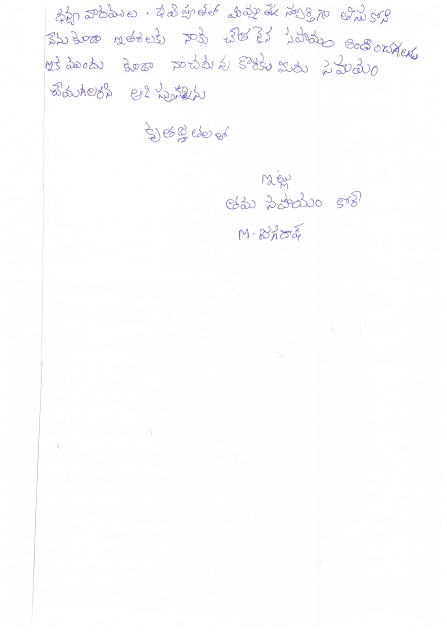 ధన్యవాదములు. భవిష్యత్తులో మిమ్మల్ని స్ఫూర్తిగా తీసుకొని
నేను కూడా ఇతరులకు నాకు చేతనైన సహాయం అందించగలను
ఇక ముందు కూడా నా చదువు కొరకు మీరు సహాయం
చేయగలరని ఆశిస్తున్నాను
కృతజ్ఞతలతో
ఇట్లు
తమ సహాయం కోరే
M.